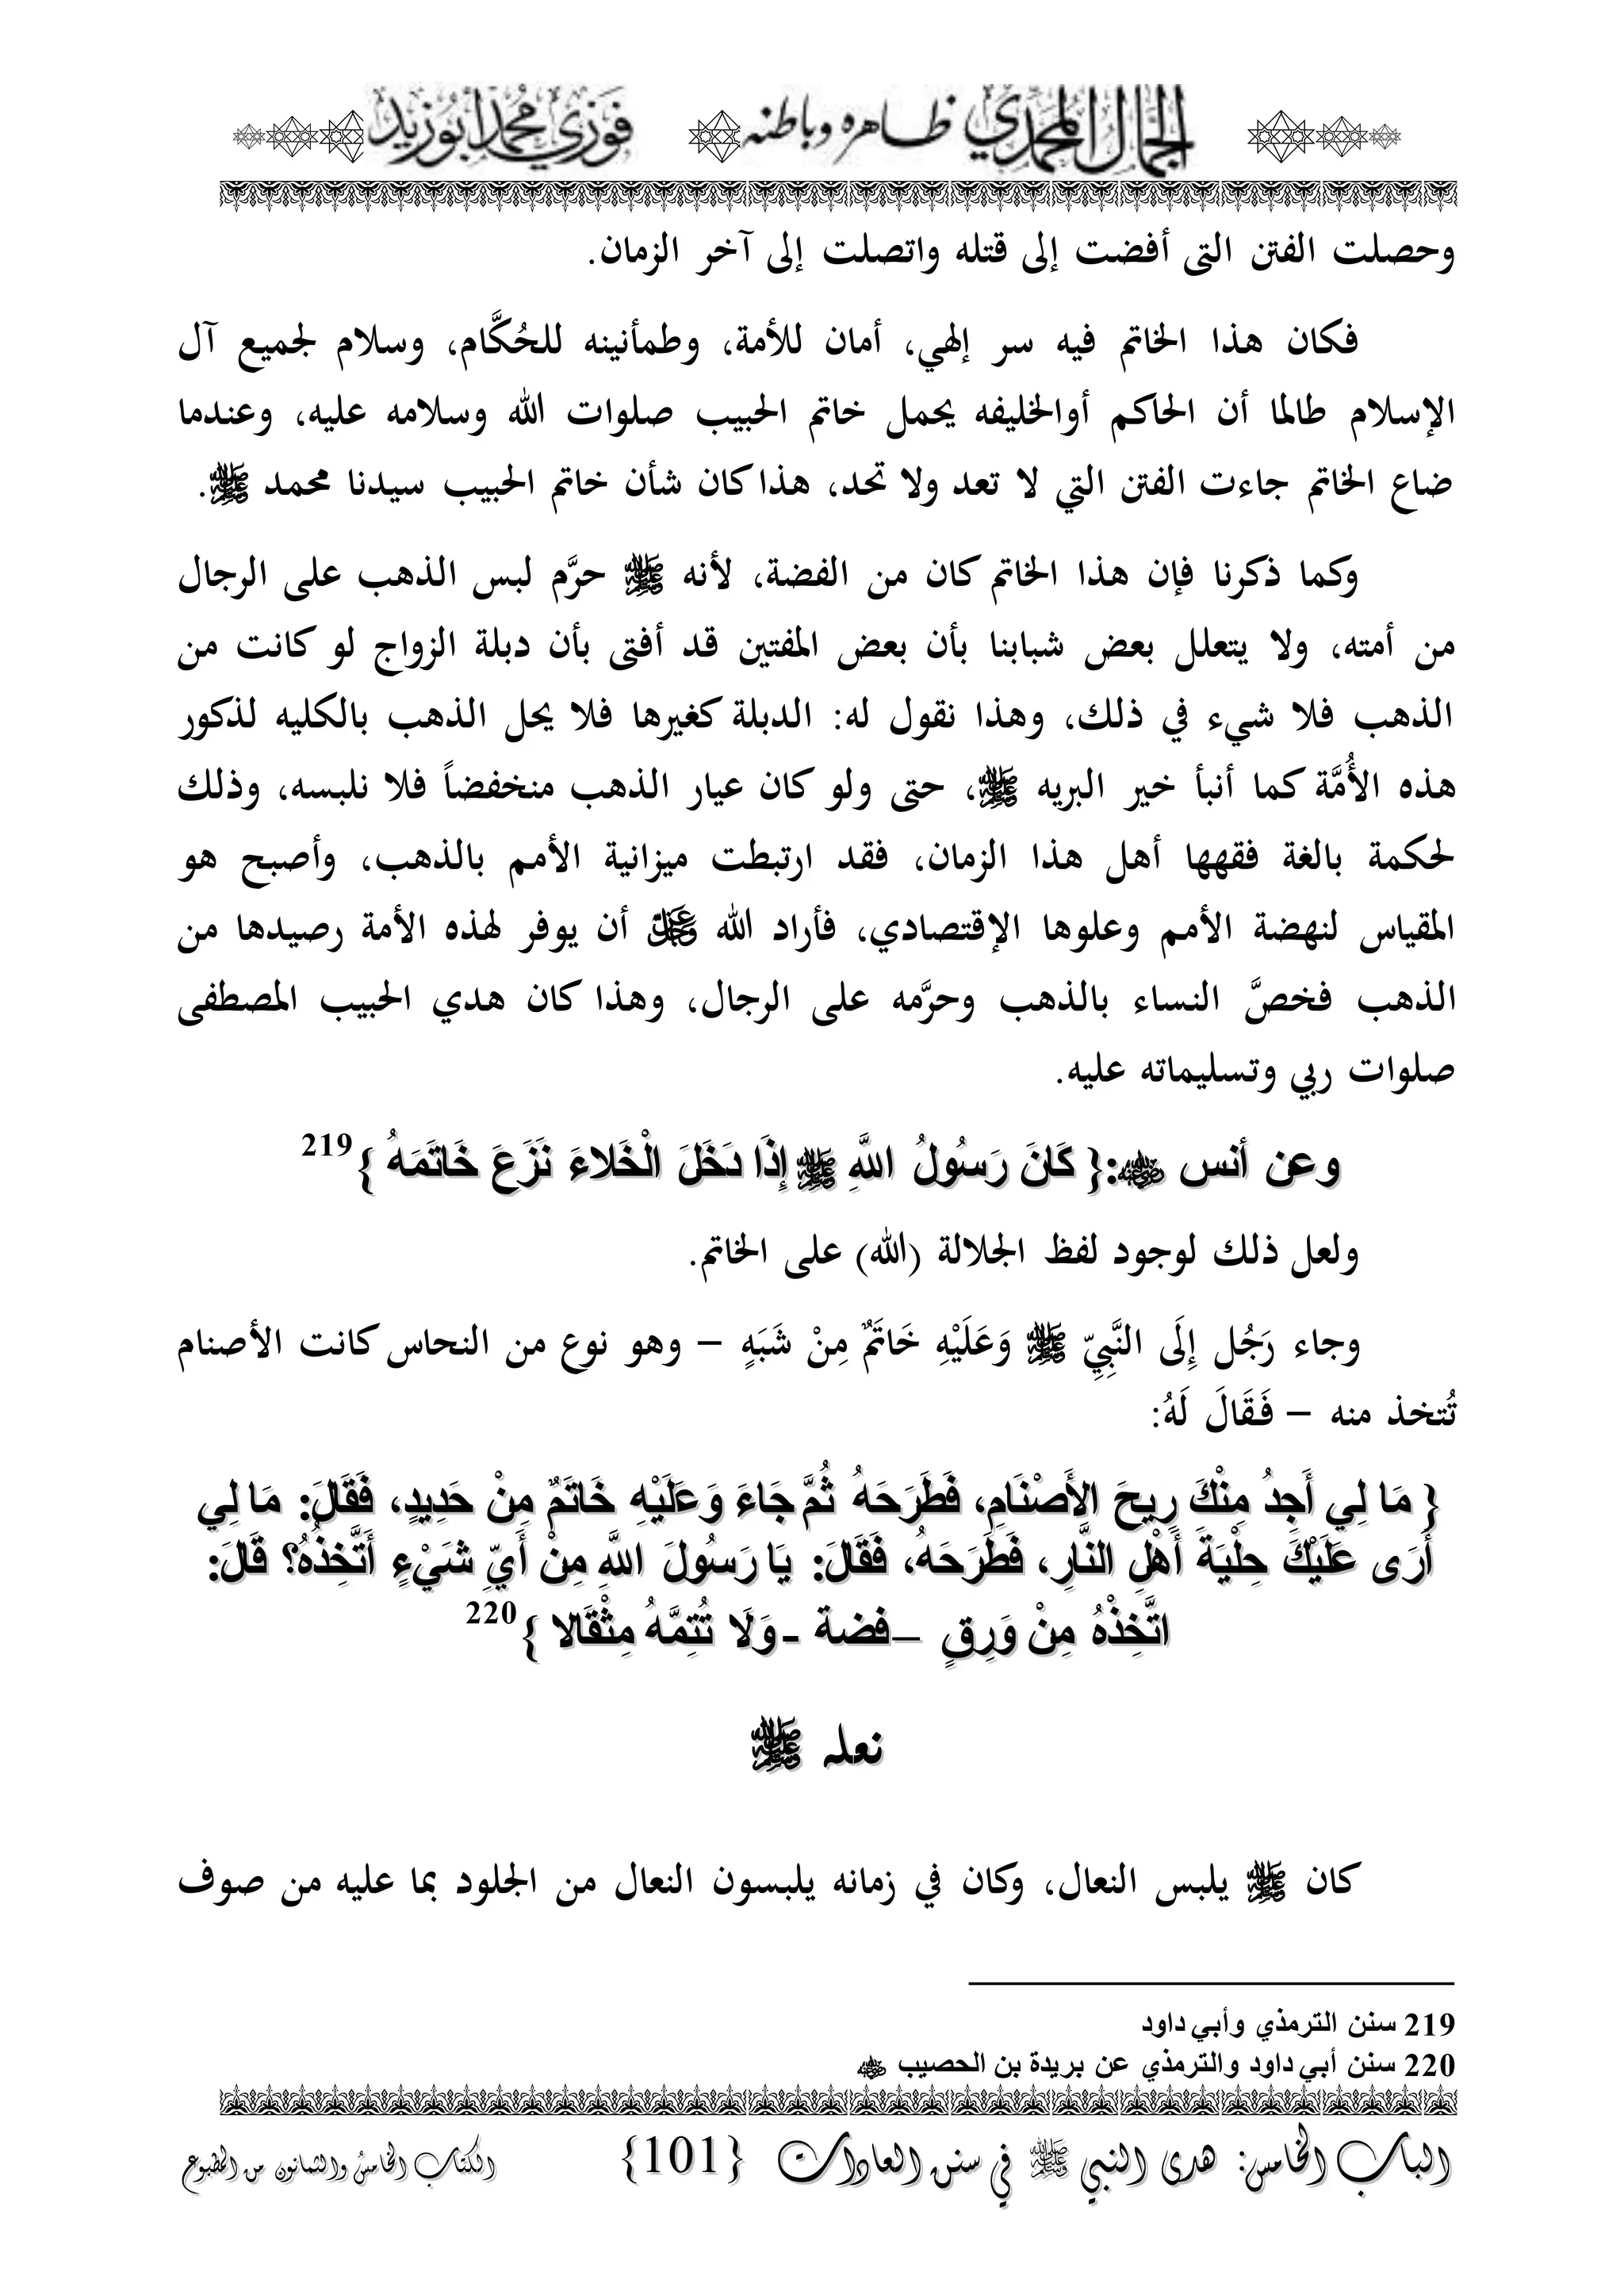 الجمال المحمدي ظاهره وباطنه فوزي محمد أبوزيد
وحصلت الفتن التى أفضت إلى قتله واتصلت إلى آخر الزمان.
فكان هذا الخاتم فيه سر إلهي، أمان للأمة، وطمأنينه للحُكَّام، وسلام لجميع آل
الإسلام طالما أن الحاكم أوالخليفه يحمل خاتم الحبيب صلوات الله وسلامه عليه، وعندما
ضاع الخاتم جاءت الفتن التي لا تعد ولا تحد، هذا كان شأن خاتم الحبيب سيدنا محمد ﷺ.
وكما ذكرنا فإن هذا الخاتم كان من الفضة، لأنه ﷺ حرَّم لبس الذهب على الرجال
من أمته، ولا يتعلل بعض شبابنا بأن بعض المفتين قد أفتى بأن دبلة الزواج لو كانت من
الذهب فلا شيء في ذلك، وهذا نقول له: الدبلة كغيرها فلا يحل الذهب بالكليه لذكور
هذه الأُمَّة كما أنبأ خير البريه ﷺ، حتى ولو كان عيار الذهب منخفضاً فلا نلبسه، وذلك
لحكمة بالغة فقهها أهل هذا الزمان، فقد ارتبطت ميزانية الأمم بالذهب، وأصبح هو
المقياس لنهضة الأمم وعلوها الإقتصادي، فأراد الله عز وجل أن يوفر لهذه الأمة رصيدها من
الذهب فخصَّ النساء بالذهب وحرَّمه على الرجال، وهذا كان هدي الحبيب المصطفى
صلوات ربي وتسليماته عليه.
وعن أنس رضي الله عنه:{ كَانَ رَسُولُ اللَّهِ ﷺ إِذَا دَخَلَ الْخَلاءَ نَزَعَ خَاتَمَهُ }219
ولعل ذلك لوجود لفظ الجلالة (الله) على الخاتم.
وجاء رَجُل إِلَى النَّبِيِّ ﷺ وَعَلَيْهِ خَاتَمٌ مِنْ شَبَهٍ – وهو نوع من النحاس كانت الأصنام
تُتخذ منه – فَقَالَ لَهُ:
{ مَا لِي أَجِدُ مِنْكَ رِيحَ الأَصْنَامِ، فَطَرَحَهُ ثُمَّ جَاءَ وَعَلَيْهِ خَاتَمٌ مِنْ حَدِيدٍ، فَقَالَ: مَا لِي
أَرَى عَلَيْكَ حِلْيَةَ أَهْلِ النَّارِ، فَطَرَحَهُ، فَقَالَ: يَا رَسُولَ اللَّهِ مِنْ أَيِّ شَيْءٍ أَتَّخِذُهُ؟ قَالَ:
اتَّخِذْهُ مِنْ وَرِقٍ – فضة - وَلَا تُتِمَّهُ مِثْقَالا }220
نعله ﷺ
كان ﷺ يلبس النعال، وكان في زمانه يلبسون النعال من الجلود بما عليه من صوف
219 سنن الترمذي وأبي داود
220 سنن أبي داود والترمذي عن بريدة بن الحصيب رضي الله عنه
الباب الخامس: هدى النبي ﷺ في سنن العادات {101} الكتاب الخامس والثمانون من المطبوع